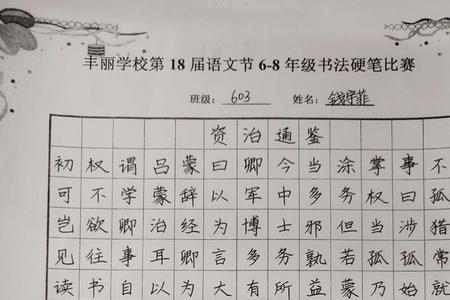 丰丽学校第18届语文节6-8年级书法硬笔比赛
班级：603 姓名：钱学菲
资治通鉴
初权谓吕蒙曰卿今当涂掌事不
可不学蒙辞以军中多务权曰孤
岂欲卿治经为博士邪但当涉猎
见往事耳卿言多务孰若孤孤常
读书自以为大有所益蒙乃始就